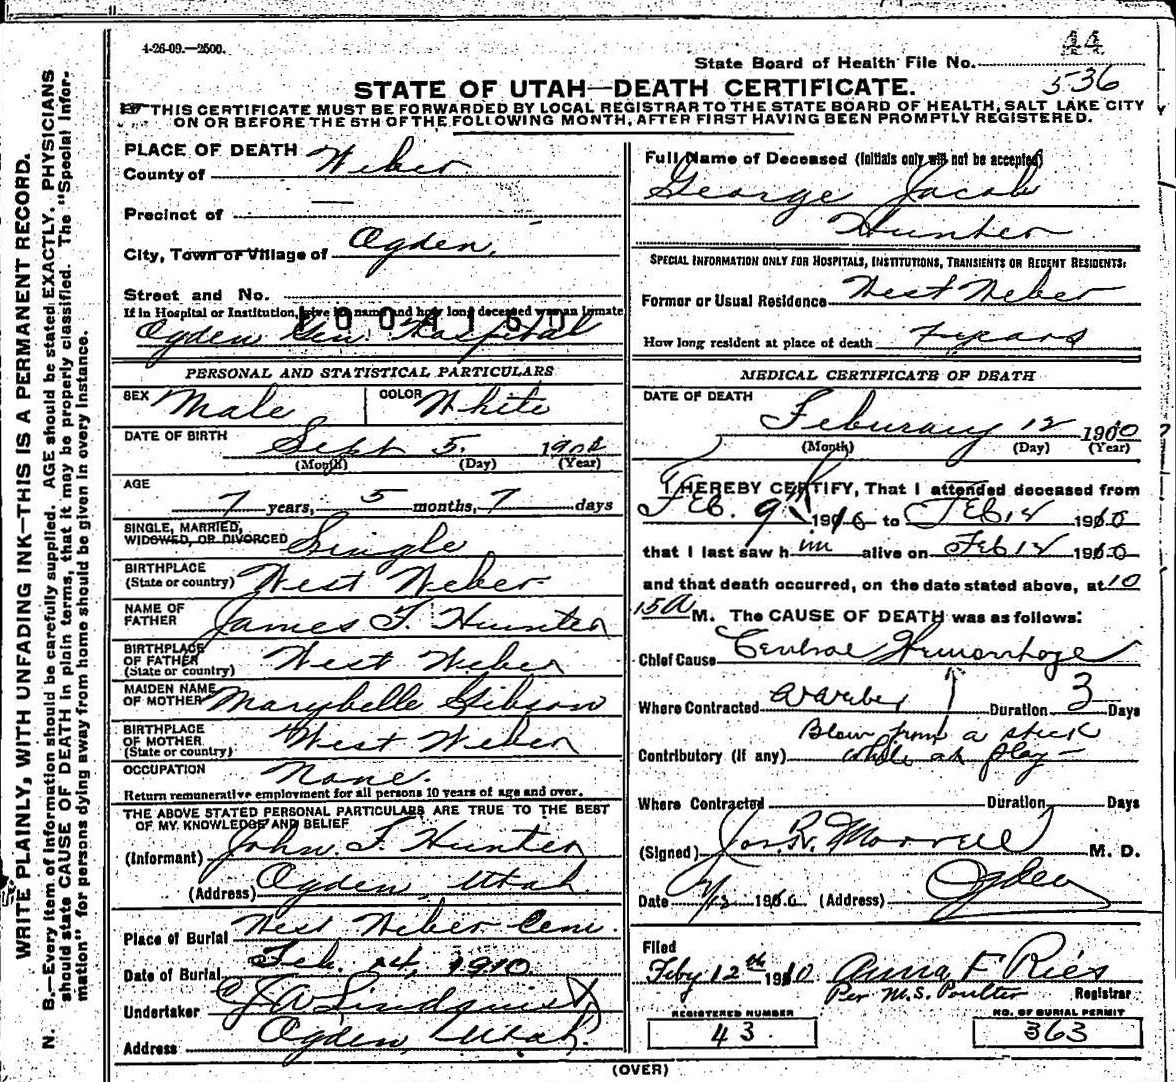 4-26-09.—2500.
44
State Board of Health File No.
536
STATE OF UTAH—DEATH CERTIFICATE.
THIS CERTIFICATE MUST BE FORWARDED BY LOCAL REGISTRAR TO THE STATE BOARD OF HEALTH, SALT LAKE CITY
ON OR BEFORE THE 5TH OF THE FOLLOWING MONTH, AFTER FIRST HAVING BEEN PROMPTLY REGISTERED.
WRITE PLAINLY, WITH UNFADING INK—THIS IS A PERMANENT RECORD.
N. B.—Every item of information should be carefully supplied. AGE should be stated EXACTLY. PHYSICIANS
should state CAUSE OF DEATH in plain terms, that it may be properly classified. The "Special Infor-
mation" for persons dying away from home should be given in every instance.
PLACE OF DEATH
County of Weber
Precinct of —
City, Town or Village of Ogden,
Street and No.
If in Hospital or Institution, give its name and how long deceased was an inmate
Ogden Gen. Hospital
PERSONAL AND STATISTICAL PARTICULARS
SEX Male COLOR White
DATE OF BIRTH
Sept 5. 1902
(Month) (Day) (Year)
AGE
7 years, 5 months, 7 days
SINGLE, MARRIED,
WIDOWED, OR DIVORCED Single
BIRTHPLACE
(State or country) West Weber
NAME OF
FATHER James F. Hunter
BIRTHPLACE
OF FATHER West Weber
(State or country)
MAIDEN NAME
OF MOTHER Marybelle Gibson
BIRTHPLACE
OF MOTHER West Weber
(State or country)
OCCUPATION None.
Return remunerative employment for all persons 10 years of age and over.
THE ABOVE STATED PERSONAL PARTICULARS ARE TRUE TO THE BEST
OF MY KNOWLEDGE AND BELIEF
(Informant) John F. Hunter
(Address) Ogden, Utah
Place of Burial West Weber Cem.
Date of Burial Feb. 14, 1910.
Undertaker C J A Lindquist
Address Ogden, Utah.
Full Name of Deceased (Initials only will not be accepted)
George Jacob
Hunter
SPECIAL INFORMATION ONLY FOR HOSPITALS, INSTITUTIONS, TRANSIENTS OR RECENT RESIDENTS:
Former or Usual Residence West Weber
How long resident at place of death 7 years
MEDICAL CERTIFICATE OF DEATH
DATE OF DEATH
Feburary 12 1910
(Month) (Day) (Year)
I HEREBY CERTIFY, That I attended deceased from
Feb. 9th 1910 to Feb 12 1910
that I last saw him alive on Feb 12 1910
and that death occurred, on the date stated above, at 10
15 A M. The CAUSE OF DEATH was as follows:
Chief Cause Hemorrhage
Where Contracted Duration 3 Days
Blow from a stick
Contributory (if any) while at play —
Where Contracted Duration Days
(Signed) Jos. R. Morrell M. D.
Date 2/13 1910 (Address) Ogden
Filed
Feby 12th 1910 Anna F Ries
Per M.S. Poulter Registrar
REGISTERED NUMBER
43
NO. OF BURIAL PERMIT
363
(OVER)